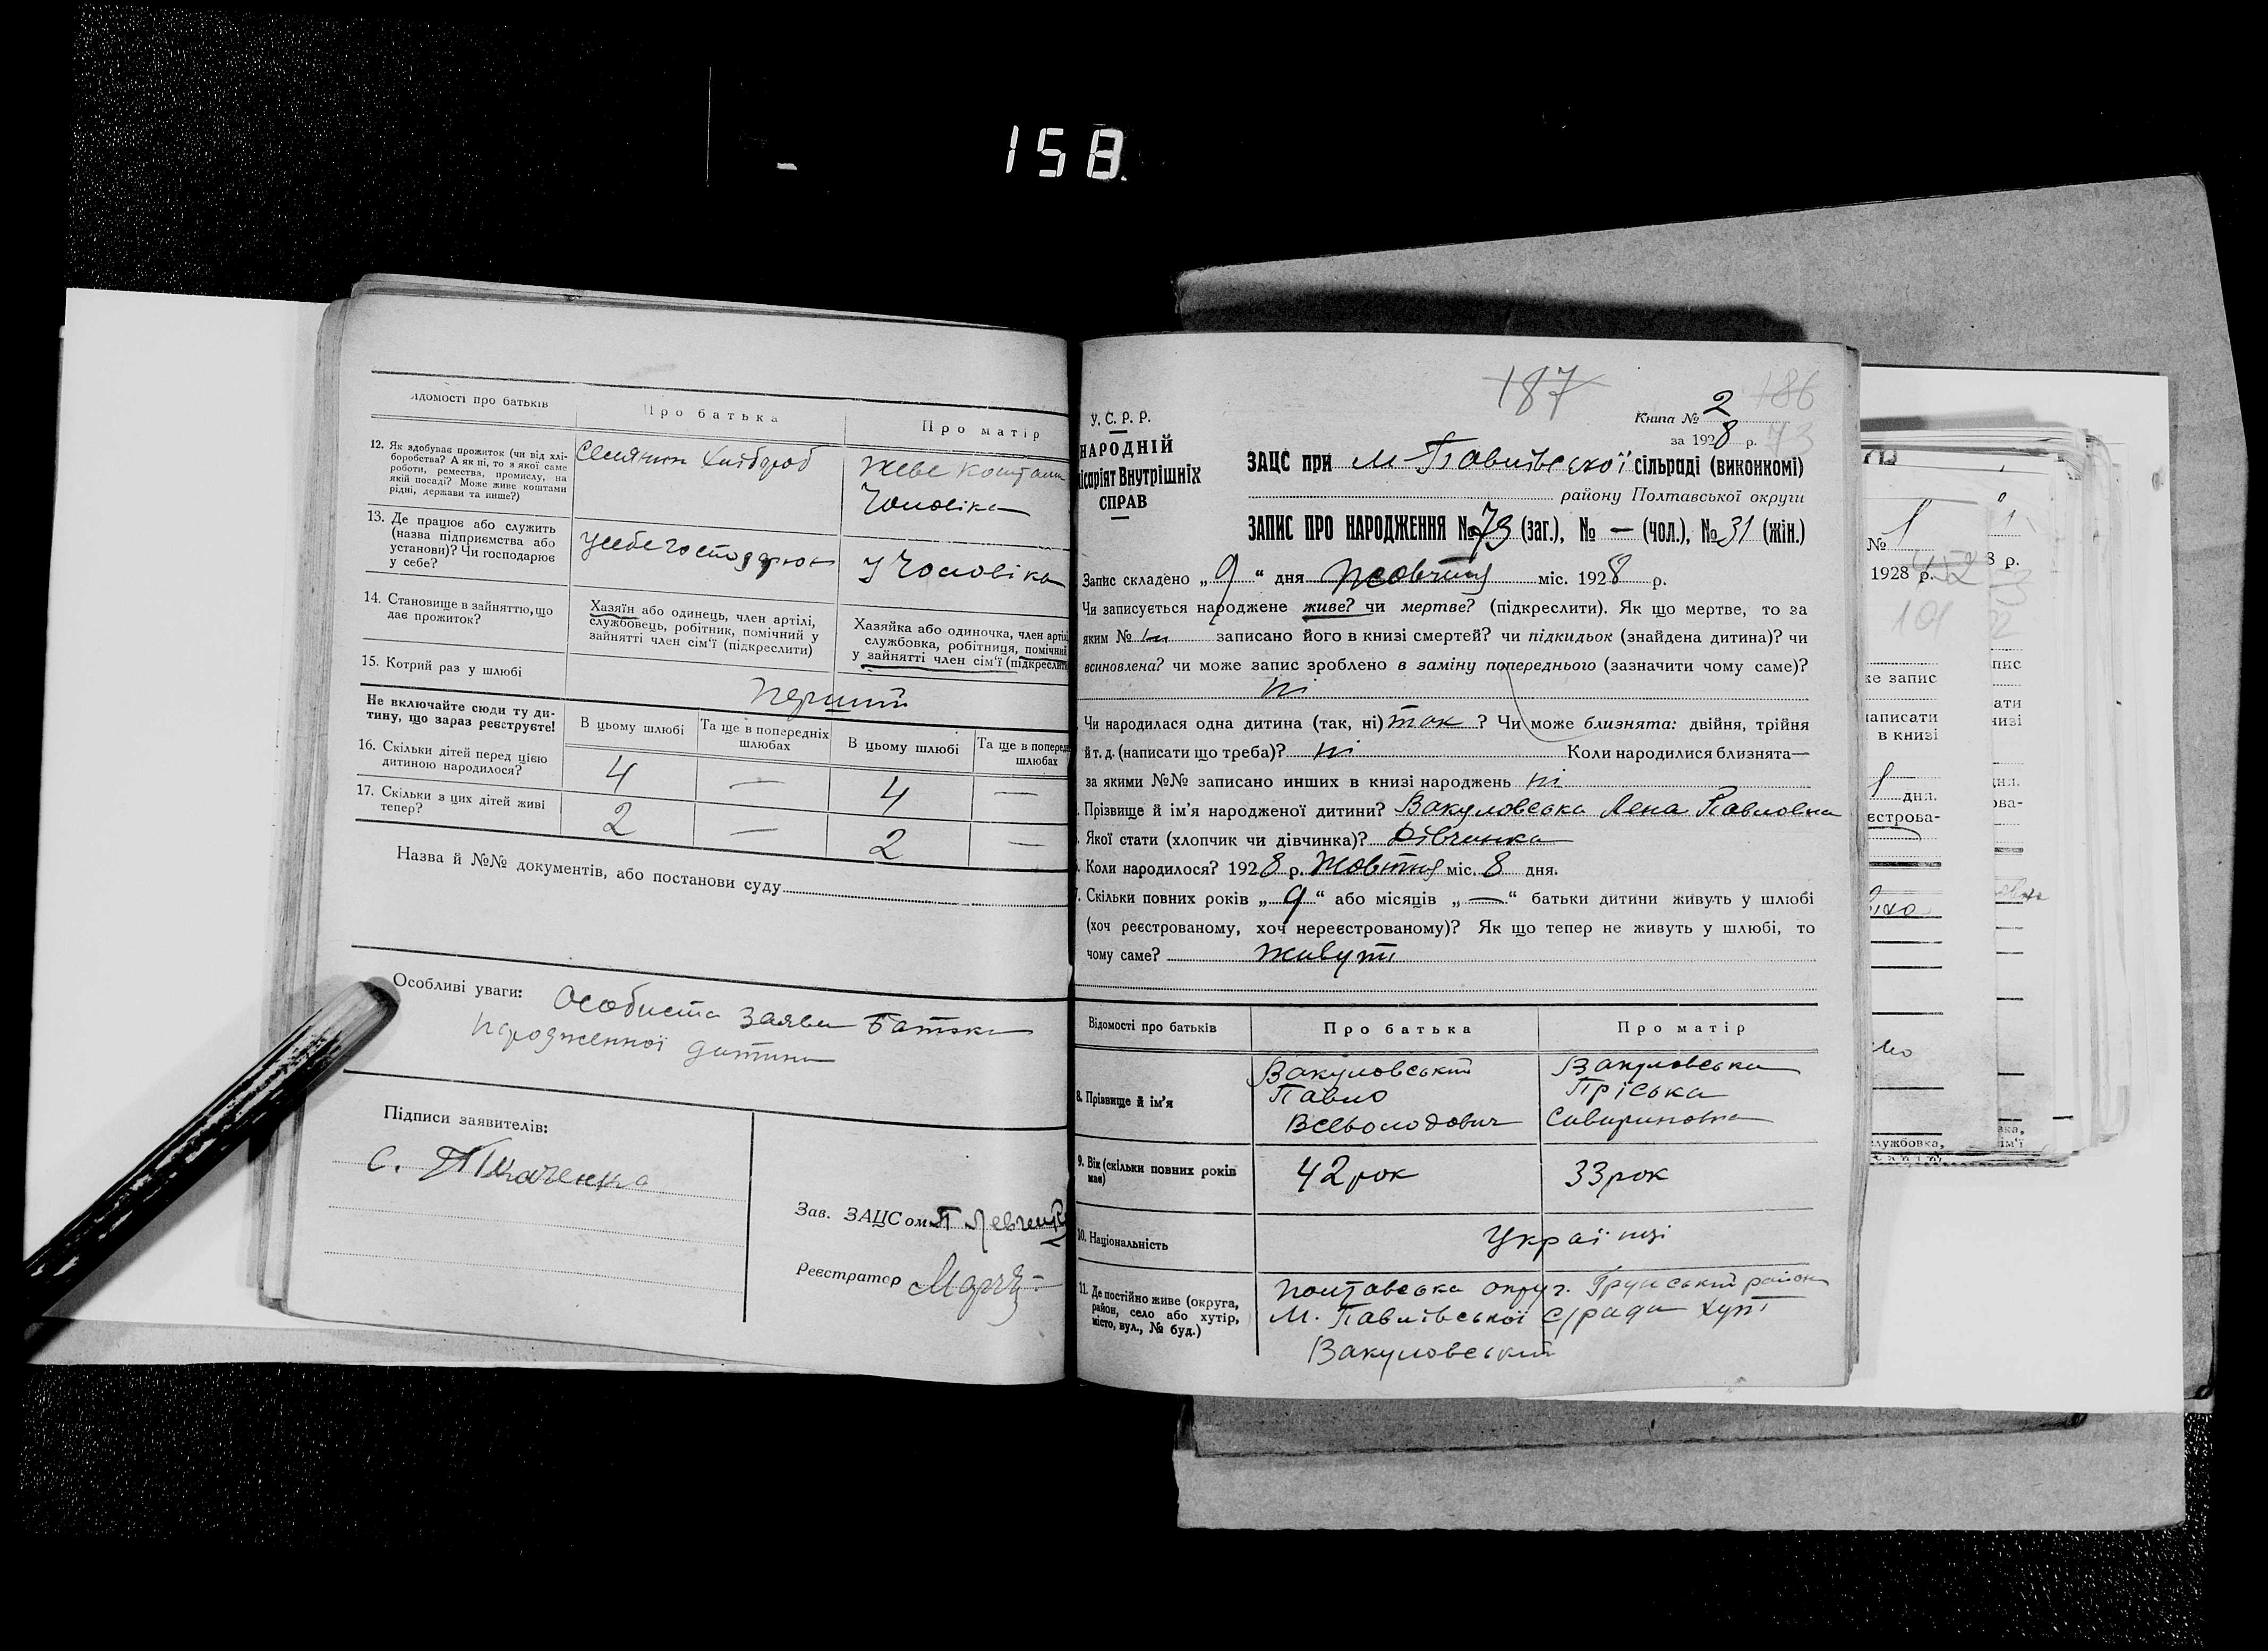 158.
Відомості про батьків
Про батька
Про матір
12. Як здобуває прожиток (чи від хлі-
боробства? А як ні, то з якої саме
роботи, ремества, промислу, на
якій посаді? Може живе коштами
рідні, держави та инше?)
Селянин Хлібороб
живе коштами
Чоловіка
13. Де працює або служить
(назва підприємства або
установи)? Чи господарює
у себе?
У Чоловіка
14. Становище в зайняттю, що
дає прожиток?
Хазяїн або одинець, член артілі,
службовець, робітник, помічний у
зайнятті член сім'ї (підкреслити)
Хазяйка або одиночка, член артілі
службовка, робітниця, помічний
у зайнятті член сім'ї (підкреслити
15. Котрий раз у шлюбі
Не включайте сюди ту ди-
тину, що зараз реєструєте!
В цьому шлюбі
Та ще в попередніх
шлюбах
В цьому шлюбі
Та ще в поперед
шлюбах
16. Скільки дітей перед цією
дитиною народилося?
4 — 4 —
17. Скільки з цих дітей живі
тепер?
2 — 2 —
Назва й №№ документів, або постанови суду
Особливі уваги: Особиста заява Батька
народженної дитини
Підписи заявителів:
С. Ткаченко
Зав. ЗАЦСом П Левченко
Реєстратор
187
186
73
У. С. Р. Р.
НАРОДНІЙ
місаріят Внутрішніх
СПРАВ
Книга № 2
за 1928 р.
ЗАЦС при М-Павлівської сільраді (виконкомі)
району Полтавської округи
ЗАПИС ПРО НАРОДЖЕННЯ № 73 (заг.), № — (чол.), № 31 (жін.)
Запис складено „9“ дня Жовтня міс. 1928 р.
Чи записується народжене живе? чи мертве? (підкреслити). Як що мертве, то за
яким № записано його в книзі смертей? чи підкидьок (знайдена дитина)? чи
всиновлена? чи може запис зроблено в заміну попереднього (зазначити чому саме)?
ні
Чи народилася одна дитина (так, ні) так ? Чи може близнята: двійня, трійня
й т. д. (написати що треба)? ні Коли народилися близнята—
за якими №№ записано инших в книзі народжень ні
Прізвище й ім'я народженої дитини? Вакуловська Лена Павловна
Якої стати (хлопчик чи дівчинка)? Дівчинка
Коли народилося? 1928 р. Жовтня міс. 8 дня.
Скільки повних років „9“ або місяців „—“ батьки дитини живуть у шлюбі
(хоч реєстрованому, хоч нереєстрованому)? Як що тепер не живуть у шлюбі, то
чому саме? живуть
Відомості про батьків
Про батька
Про матір
8. Прізвище й ім'я
Вакуловський
Павло
Всеволодович
Вакуловська
Пріська
9. Вік (скільки повних років
має)
42 рок
33 рок
10. Національність
Украї нці
11. Де постійно живе (округа,
район, село або хутір,
місто, вул., № буд.)
Полтавська округ. Грунський район
М. Павлівської с/ради хут
Вакуловський
№ 1
1928 р.
101
же запис
написати
в книзі
дня.
естрова-
службовка,